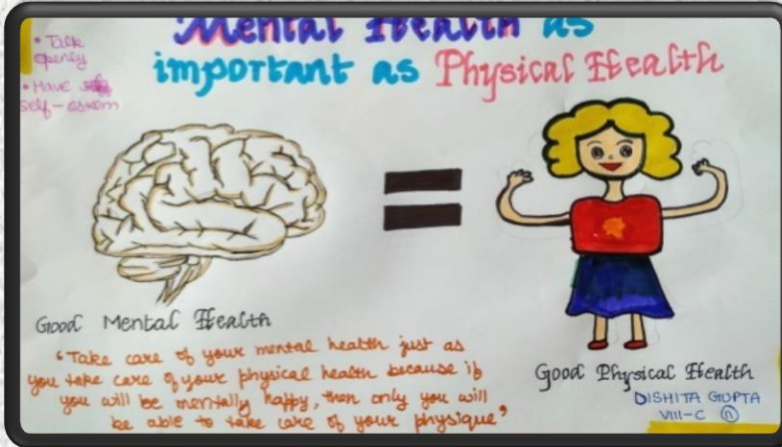 • Talk
openly
• Have
self-esteem
Mental Health as
important as Physical Health
Good Mental Health
"Take care of your mental health just as
you take care of your physical health because if
you will be mentally happy, then only you will
be able to take care of your physique"
Good Physical Health
DISHITA GUPTA
VIII-C